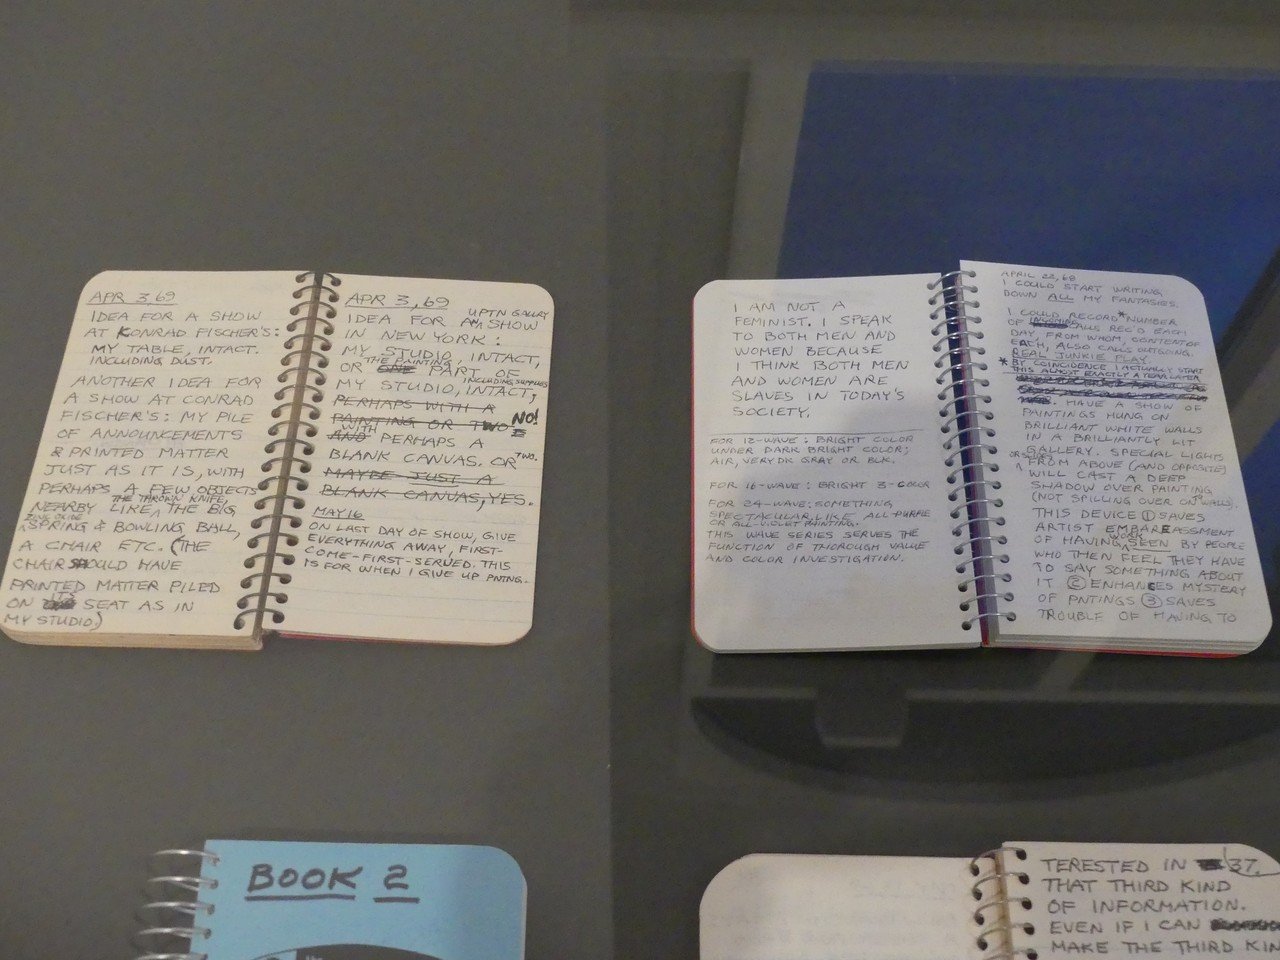 APR 3, 69
IDEA FOR A SHOW
AT KONRAD FISCHER'S:
MY TABLE, INTACT.
INCLUDING DUST.
ANOTHER IDEA FOR
A SHOW AT CONRAD
FISCHER'S: MY PILE
OF ANNOUNCEMENTS
& PRINTED MATTER
JUST AS IT IS, WITH
PERHAPS A FEW OBJECTS
THE THROWN KNIFE,
NEARBY LIKE THE BIG
SPRING & BOWLING BALL,
A CHAIR ETC. (THE
CHAIR SHOULD HAVE
PRINTED MATTER PILED
ON ITS SEAT AS IN
MY STUDIO.)
APR 3, 69
UPTN GALLRY
IDEA FOR AN SHOW
IN NEW YORK:
MY STUDIO, INTACT,
THE PAINTING
OR ONE PART OF
INCLUDING SUPPLIES
MY STUDIO, INTACT,
PERHAPS WITH A
PAINTING OR TWO NO!
WITH
AND PERHAPS A
BLANK CANVAS. OR TWO.
MAYBE JUST A
BLANK CANVAS, YES.
MAY 16
ON LAST DAY OF SHOW, GIVE
EVERYTHING AWAY, FIRST-
COME-FIRST-SERVED. THIS
IS FOR WHEN I GIVE UP PNTNG.
I AM NOT A
FEMINIST. I SPEAK
TO BOTH MEN AND
WOMEN BECAUSE
I THINK BOTH MEN
AND WOMEN ARE
SLAVES IN TODAY'S
SOCIETY.
FOR 12-WAVE: BRIGHT COLOR
UNDER DARK BRIGHT COLOR;
AIR, VERY DK GRAY OR BLK.
FOR 16-WAVE: BRIGHT 3-COLOR
FOR 24-WAVE: SOMETHING
SPECTACULAR LIKE ALL-PURPLE
OR ALL-VIOLET PAINTING.
THIS WAVE SERIES SERVES THE
FUNCTION OF THOROUGH VALUE
AND COLOR INVESTIGATION.
APRIL 22, 68
I COULD START WRITING
DOWN ALL MY FANTASIES.
I COULD RECORD *NUMBER
OF INCOMING CALLS REC'D EACH
DAY, FROM WHOM, CONTENT OF
EACH, ALSO CALLS OUTGOING.
REAL JUNKIE PLAY
* BY COINCIDENCE I ACTUALLY START
THIS ALMOST EXACTLY A YEAR LATER
HAVE A SHOW OF
PAINTINGS HUNG ON
BRILLIANT WHITE WALLS
IN A BRILLIANTLY LIT
GALLERY. SPECIAL LIGHTS
OR SLIDES
FROM ABOVE (AND OPPOSITE)
WILL CAST A DEEP
SHADOW OVER PAINTING
(NOT SPILLING OVER ONTO WALLS).
THIS DEVICE ① SAVES
ARTIST EMBARRASSMENT
WORK
OF HAVING SEEN BY PEOPLE
WHO THEN FEEL THEY HAVE
TO SAY SOMETHING ABOUT
IT ② ENHANCES MYSTERY
OF PNTINGS ③ SAVES
TROUBLE OF HAVING TO
BOOK 2
TERESTED IN 37.
THAT THIRD KIND
OF INFORMATION.
EVEN IF I CAN
MAKE THE THIRD KIN